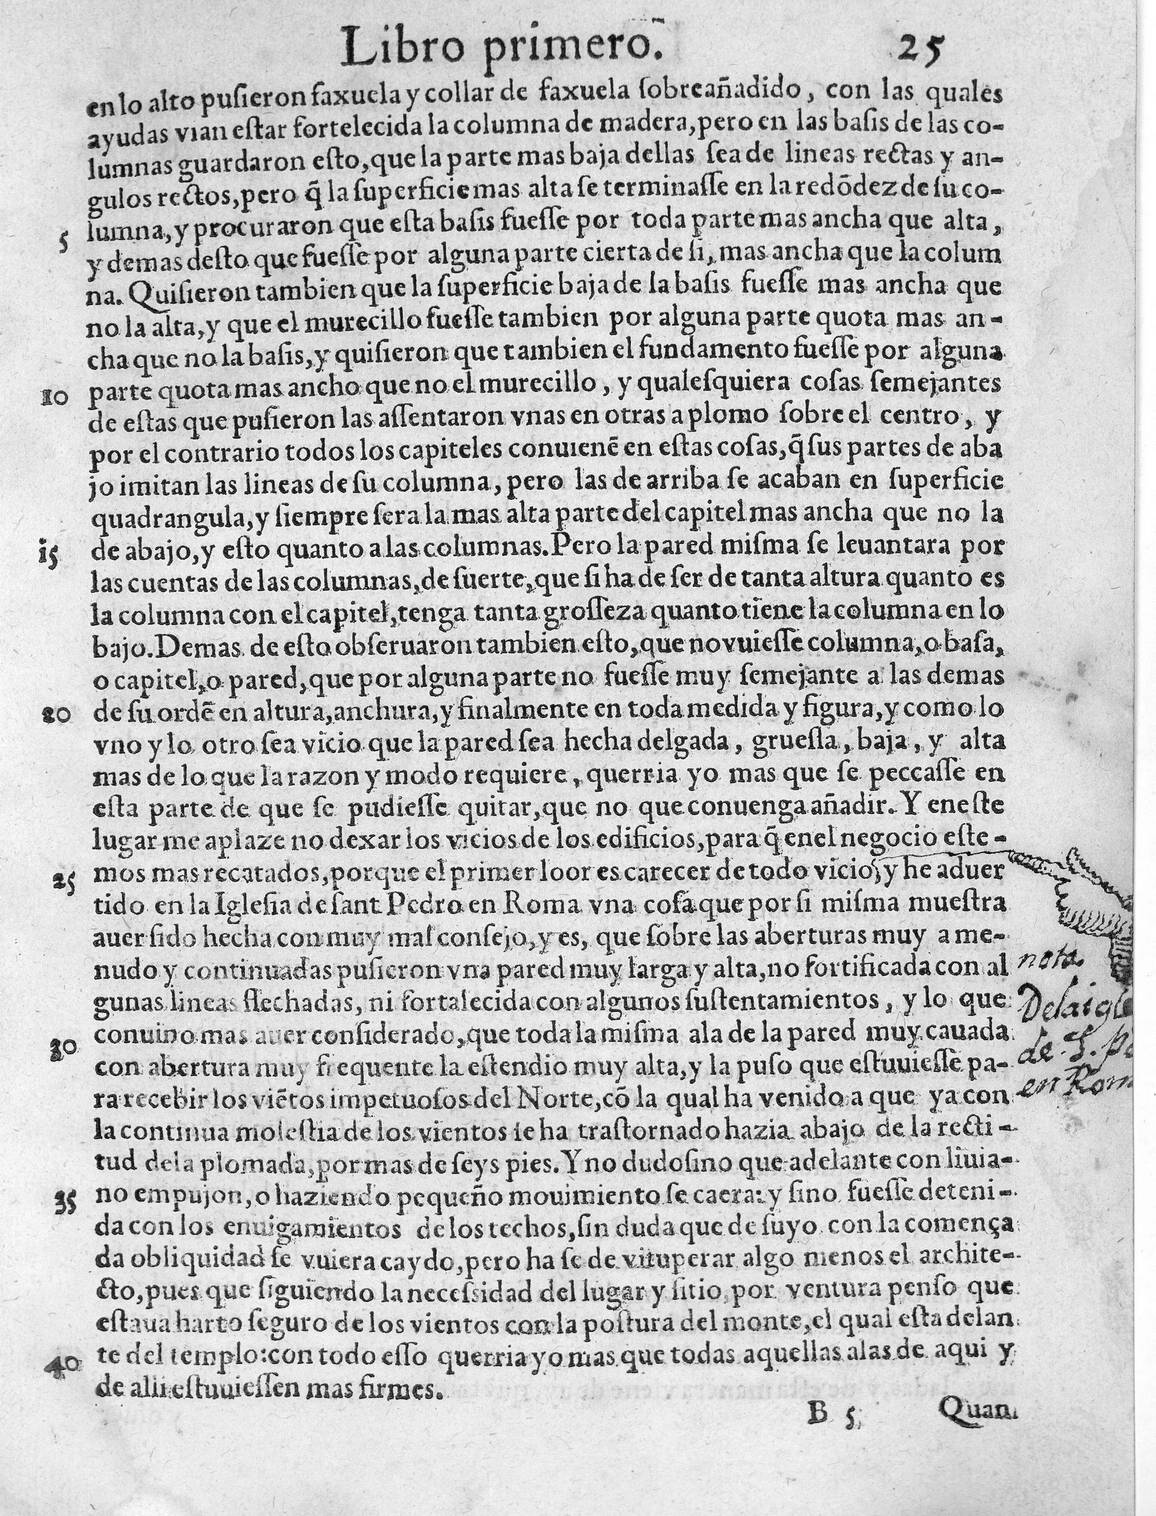 Libro primero. 25
en lo alto pusieron faxuela y collar de faxuela sobreañadido, con las quales
ayudas vian estar fortelecida la columna de madera, pero en las basis de las co-
lumnas guardaron esto, que la parte mas baja dellas sea de lineas rectas y an-
gulos rectos, pero q̃ la superficie mas alta se terminasse en la redõdez de su co-
5 lumna, y procuraron que esta basis fuesse por toda parte mas ancha que alta,
y demas desto que fuesse por alguna parte cierta de si, mas ancha que la colum
na. Quisieron tambien que la superficie baja de la basis fuesse mas ancha que
no la alta, y que el murecillo fuesse tambien por alguna parte quota mas an-
cha que no la basis, y quisieron que tambien el fundamento fuesse por alguna
10 parte quota mas ancho que no el murecillo, y qualesquiera cosas semejantes
de estas que pusieron las assentaron vnas en otras a plomo sobre el centro, y
por el contrario todos los capiteles conuienẽ en estas cosas, q̃ sus partes de aba
jo imitan las lineas de su columna, pero las de arriba se acaban en superficie
quadrangula, y siempre sera la mas alta parte del capitel mas ancha que no la
15 de abajo, y esto quanto a las columnas. Pero la pared misma se leuantara por
las cuentas de las columnas, de suerte, que si ha de ser de tanta altura quanto es
la columna con el capitel, tenga tanta grosseza quanto tiene la columna en lo
bajo. Demas de esto obseruaron tambien esto, que no vuiesse columna, o basa,
o capitel, o pared, que por alguna parte no fuesse muy semejante a las demas
20 de su ordẽ en altura, anchura, y finalmente en toda medida y figura, y como lo
vno y lo otro sea vicio que la pared sea hecha delgada, gruessa, baja, y alta
mas de lo que la razon y modo requiere, querria yo mas que se peccasse en
esta parte de que se pudiesse quitar, que no que conuenga añadir. Y en este
lugar me aplaze no dexar los vicios de los edificios, para q̃ en el negocio este-
25 mos mas recatados, porque el primer loor es carecer de todo vicio, y he aduer
tido en la Iglesia de sant Pedro en Roma vna cosa que por si misma muestra
auer sido hecha con muy mal consejo, y es, que sobre las aberturas muy a me-
nudo y continuadas pusieron vna pared muy larga y alta, no fortificada con al
gunas lineas flechadas, ni fortalecida con algunos sustentamientos, y lo que
30 conuino mas auer considerado, que toda la misma ala de la pared muy cauada
con abertura muy frequente la estendio muy alta, y la puso que estuuiesse pa-
ra recebir los viẽtos impetuosos del Norte, cõ la qual ha venido a que ya con
la continua molestia de los vientos se ha trastornado hazia abajo de la recti-
tud de la plomada, por mas de seys pies. Y no dudo sino que adelante con liuia-
35 no empujon, o haziendo pequeño mouimiento se caera: y sino fuesse deteni-
da con los enuigamientos de los techos, sin duda que de suyo con la comença
da obliquidad se vuiera caydo, pero ha se de vituperar algo menos el archite-
cto, pues que siguiendo la necessidad del lugar y sitio por ventura penso que
estaua harto seguro de los vientos con la postura del monte, el qual esta delan
40 te del templo: con todo esso querria yo mas que todas aquellas alas de aqui y
de alli estuuiessen mas firmes.
B 5 Quan
nota.
De la igl
de S. Pe
en Rom